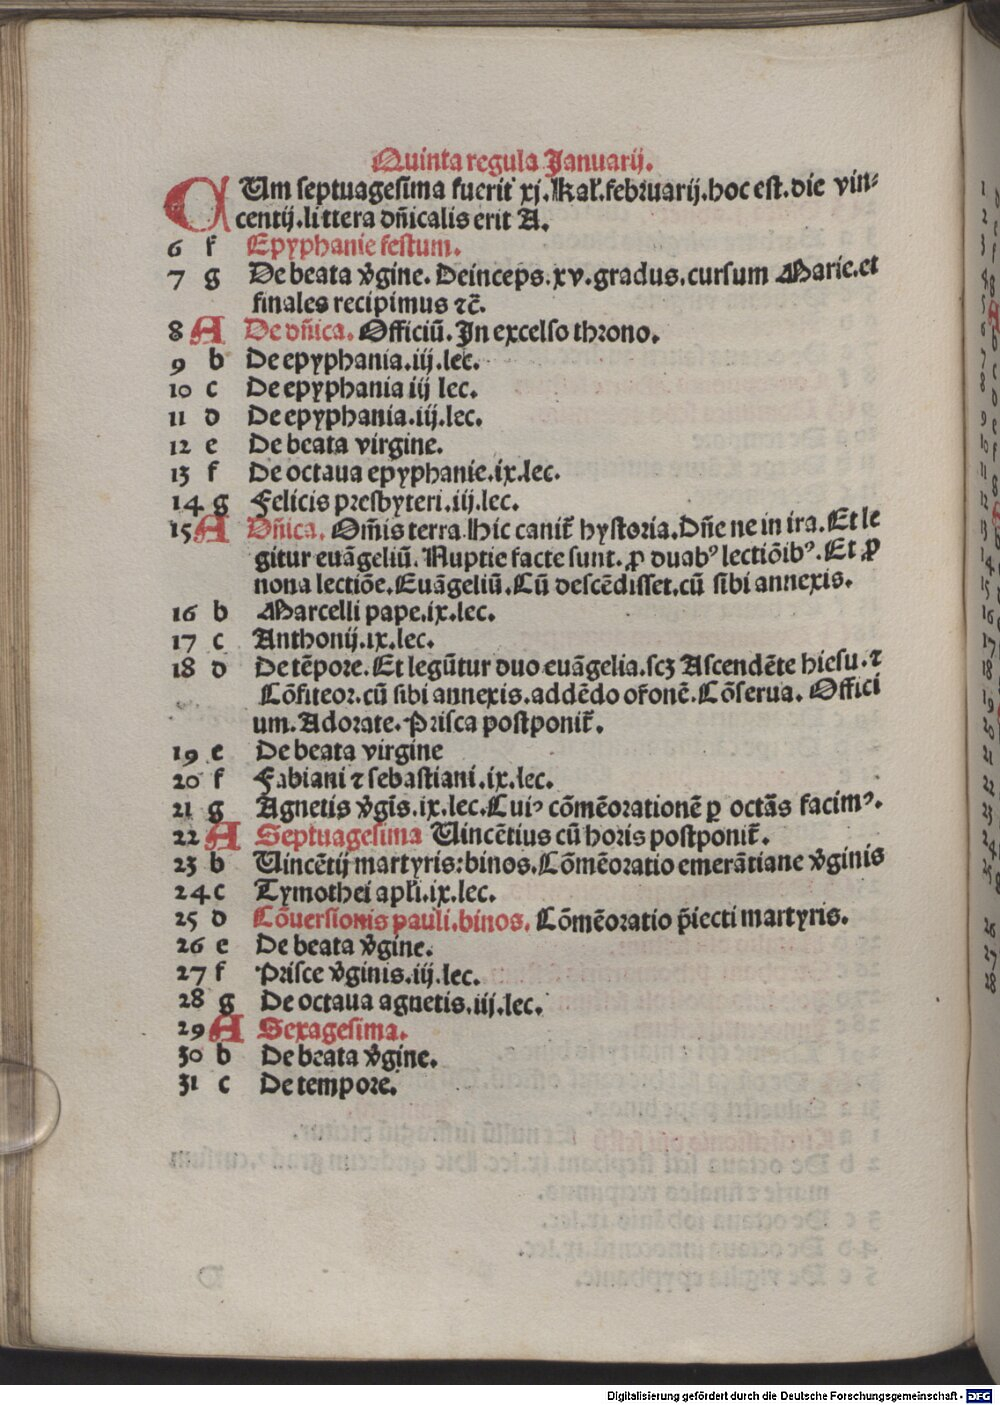 Quinta regula Januarij.
CUm septuagesima fuerit xj. kal̄. februarij. hoc est. die vin⸗
centij. littera dn̄icalis erit A.
6 f Epyphanie festum.
7 g De beata v̄gine. Deinceps. xv. gradus. cursum Marie. et
finales recipimus ⁊c̄.
8 A De dn̄ica. Officiū. In excelso throno.
9 b De epyphania. iij. lec.
10 c De epyphania iij lec.
11 d De epyphania. iij. lec.
12 e De beata virgine.
13 f De octaua epyphanie. ix. lec.
14 g Felicis presbyteri. iij. lec.
15 A Dn̄ica. Om̄is terra. Hic canit̄ hystoria. Dn̄e ne in ira. Et le
gitur euāgeliū. Nuptie facte sunt. ꝓ duabꝰ lectiōibꝰ. Et ꝓ
nona lectiōe. Euāgeliū. Cū descēdisset. cū sibi annexis.
16 b Marcelli pape. ix. lec.
17 c Anthonij. ix. lec.
18 d De tēpore. Et legūtur duo euāgelia. scꝫ Ascendēte hiesu. ⁊
Cōfiteor. cū sibi annexis. addēdo or̄onē. Cōserua. Offici
um. Adorate. Prisca postponit̄.
19 e De beata virgine
20 f Fabiani ⁊ sebastiani. ix. lec.
21 g Agnetis v̄gīs. ix. lec. Cuiꝰ cōmēorationē ꝑ octās facimꝰ.
22 A Septuagesima Uincētius cū horis postponit̄.
23 b Uincētij martyris: binos. Cōmēoratio emerātiane v̄ginis
24 c Tymothei apl̄i. ix. lec.
25 d Cōuersionis pauli. binos. Cōmēoratio p̄iecti martyris.
26 e De beata v̄gine.
27 f Prisce v̄ginis. iij. lec.
28 g De octaua agnetis. iij. lec.
29 A Sexagesima.
30 b De beata v̄gine.
31 c De tempore.
Digitalisierung gefördert durch die Deutsche Forschungsgemeinschaft - DFG